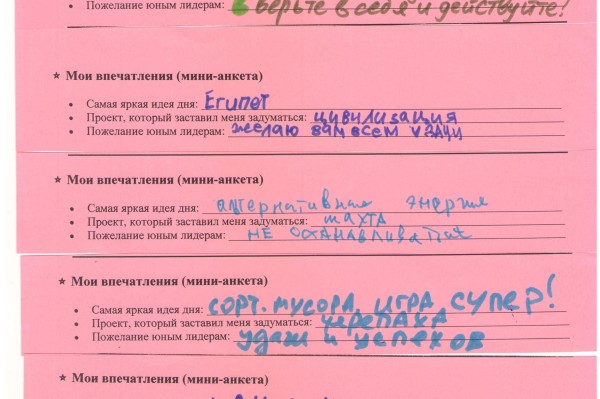 • Пожелание юным лидерам: верьте в себя и действуйте!
★ Мои впечатления (мини-анкета)
• Самая яркая идея дня: Египет
• Проект, который заставил меня задуматься: цивилизация
• Пожелание юным лидерам: желаю вам всем удачи
★ Мои впечатления (мини-анкета)
• Самая яркая идея дня: альтернативная энергия
• Проект, который заставил меня задуматься: шахта
• Пожелание юным лидерам: не останавливаться
★ Мои впечатления (мини-анкета)
• Самая яркая идея дня: сорт. мусора, игра супер!
• Проект, который заставил меня задуматься: черепаха
• Пожелание юным лидерам: удачи и успехов
★ Мои впечатления (мини-анкета)